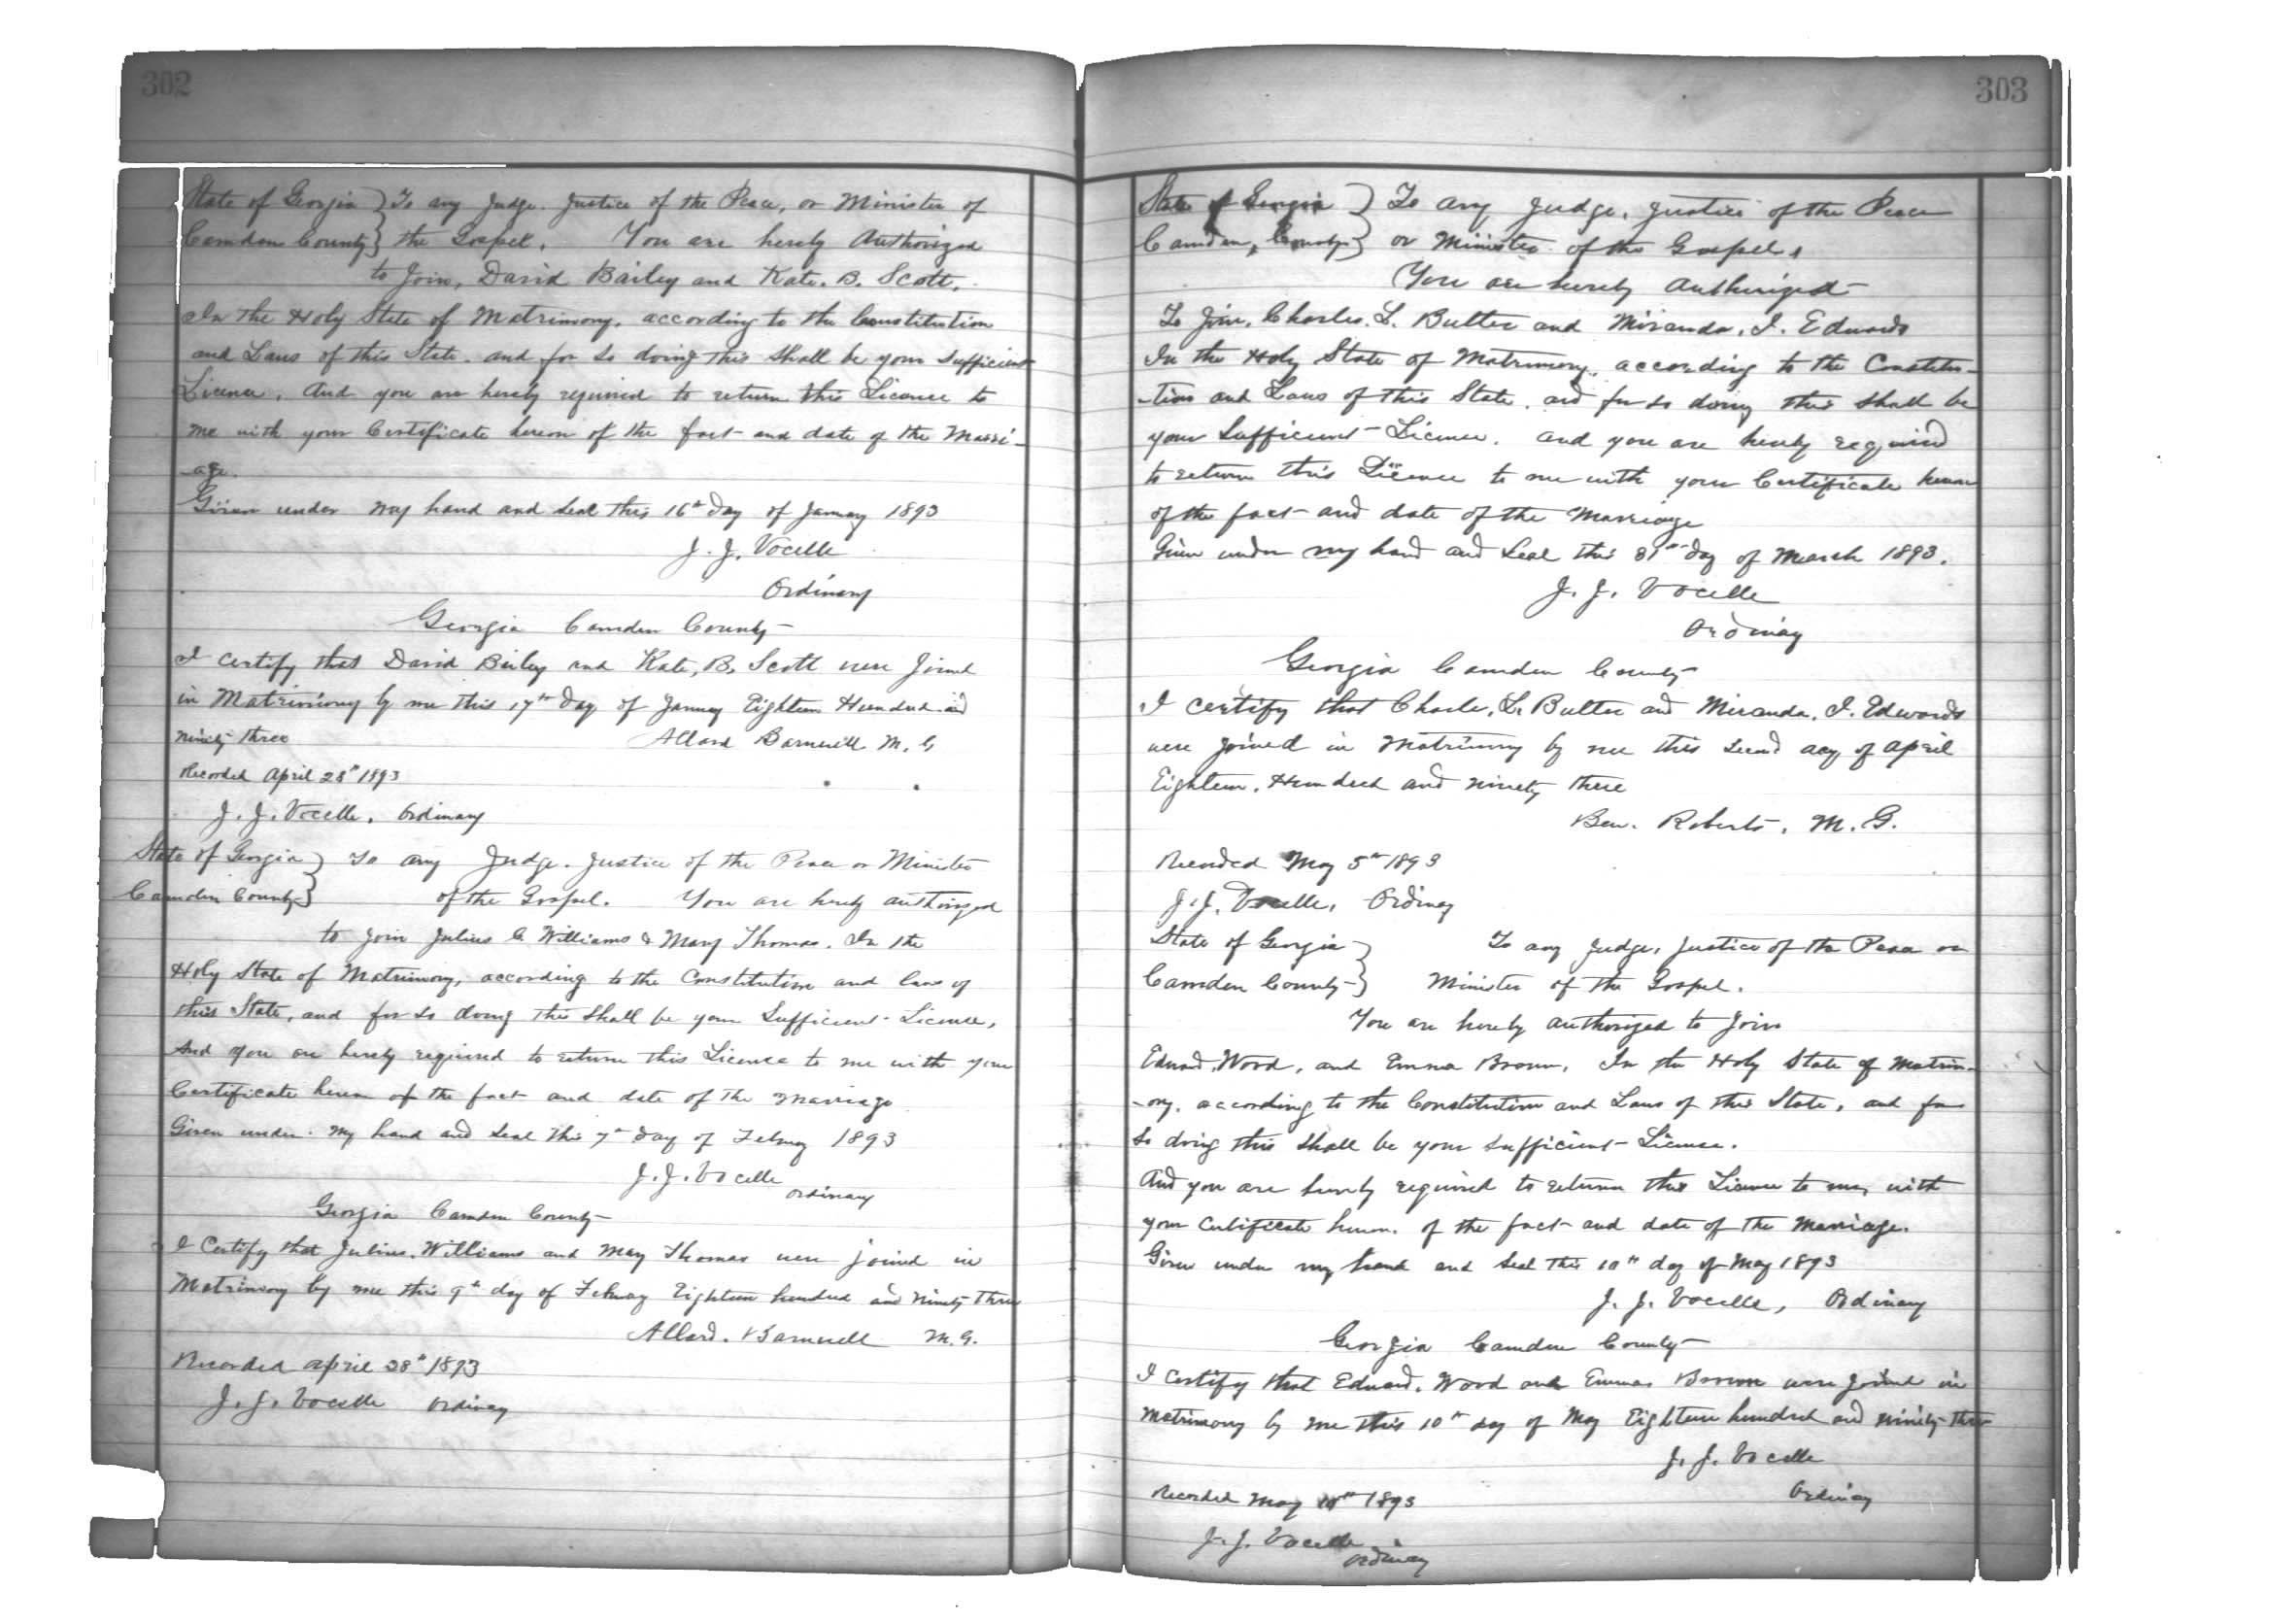 302
State of Georgia } To any Judge. Justice of the Peace, or Minister of
Camden County } the Gospel. You are hereby Authorized
to Join, David Bailey and Kate. B. Scott.
In the Holy State of Matrimony, according to the Constitution
and Laws of this State. and for so doing this shall be your sufficient
Licence, And you are hereby required to return this Licence to
me with your Certificate hereon of the fact and date of the Marri-
-age.
Given under my hand and seal this 16th day of January 1893
J. J. Vocelle
Ordinary
Georgia Camden County
I certify that David Bailey and Kate, B. Scott were Joined
in Matrimony by me this 17th day of January Eighteen Hundred and
Ninety three Allard Barnwell M. G
Recorded April 28th 1893
J. J. Vocelle, Ordinary
State of Georgia } To any Judge. Justice of the Peace or Minister
Camden County } of the Gospel. You are hereby authorized
to join Julius C Williams & Mary Thomas. In the
Holy State of Matrimony, according to the Constitution and laws of
this State, and for so doing this shall be your Sufficient Licence,
And you are hereby required to return this Licence to me with your
Certificate hereon of the fact and date of the marriage
Given under my hand and seal this 7th day of February 1893
J. J. Vocelle
Ordinary
Georgia Camden County
I Certify that Julius. Williams and Mary Thomas were joined in
Matrimony by me this 9th day of February Eighteen hundred and ninety three
Allard. Barnwell M. G.
Recorded April 28th 1893
J. J. Vocelle Ordinary
303
State of Georgia } To any Judge, Justice of the Peace
Camden, County } or Minister of the Gospel,
You are hereby authorized
To Join, Charles. L. Butler and Miranda, I. Edwards
In the Holy State of Matrimony, according to the Constitu-
-tion and Laws of this State. and for so doing this shall be
your Sufficient Licence. and you are hereby required
to return this Licence to me with your Certificate hereon
of the fact and date of the Marriage
Given under my hand and seal this 31st day of March 1893.
J. J. Vocelle
Ordinary
Georgia Camden County
I certify that Charles, L. Butler and Miranda, I. Edwards
were joined in Matrimony by me this second day of April
Eighteen, Hundred and ninety three
Ben. Roberts, M. G.
Recorded May 5th 1893
J. J. Vocelle, Ordinary
State of Georgia } To any Judge, Justice of the Peace or
Camden County } Minister of the Gospel.
You are hereby authorized to Join
Edward. Wood, and Emma Brown, In the Holy State of Matrim-
-ony, according to the Constitution and Laws of this State, and for
so doing this shall be your sufficient Licence.
And you are hereby required to return this Licence to me, with
your Certificate hereon. of the fact and date of the Marriage.
Given under my hand and seal this 10th day of May 1893
J. J. Vocelle, Ordinary
Georgia Camden County
I certify that Edward. Wood and Emma Brown were joined in
matrimony by me this 10th day of May Eighteen hundred and ninety-three
J. J. Vocelle
Ordinary
Recorded May 10th 1893
J. J. Vocelle
Ordinary